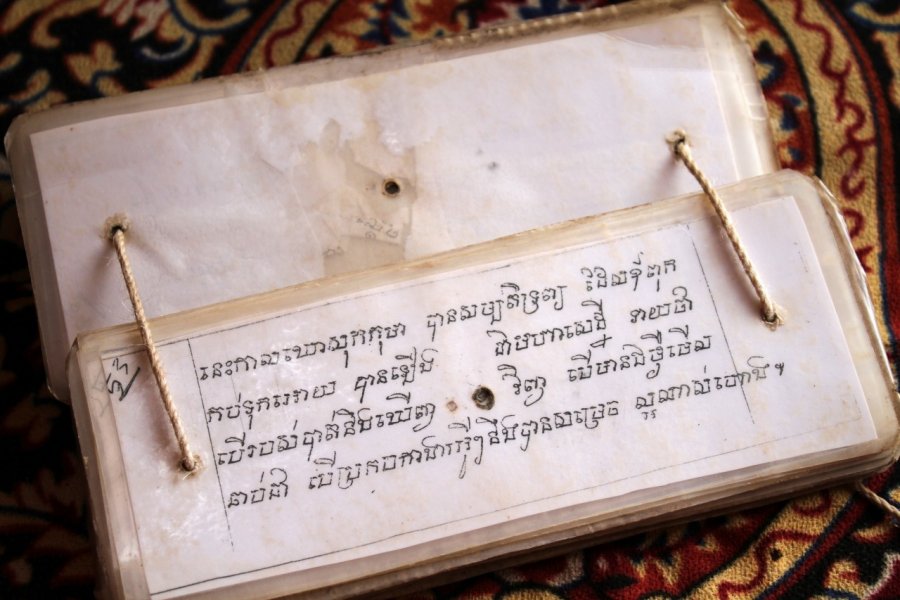 នេះកាលឃោសុកកុមា បានសម្បតិទ្រព្យ ដែលឪពុក
កប់ទុកអោយ បានឡើង ជាមហាសេដ្ឋី ទាយថា
បើរបស់បាត់នឹងឃើញ វិញ បើមានជម្ងឺមើល
ឆាប់ជា បើប្រកបកាងារអ្វីៗនឹងបានសម្រេច ល្អណាស់ហោង ។